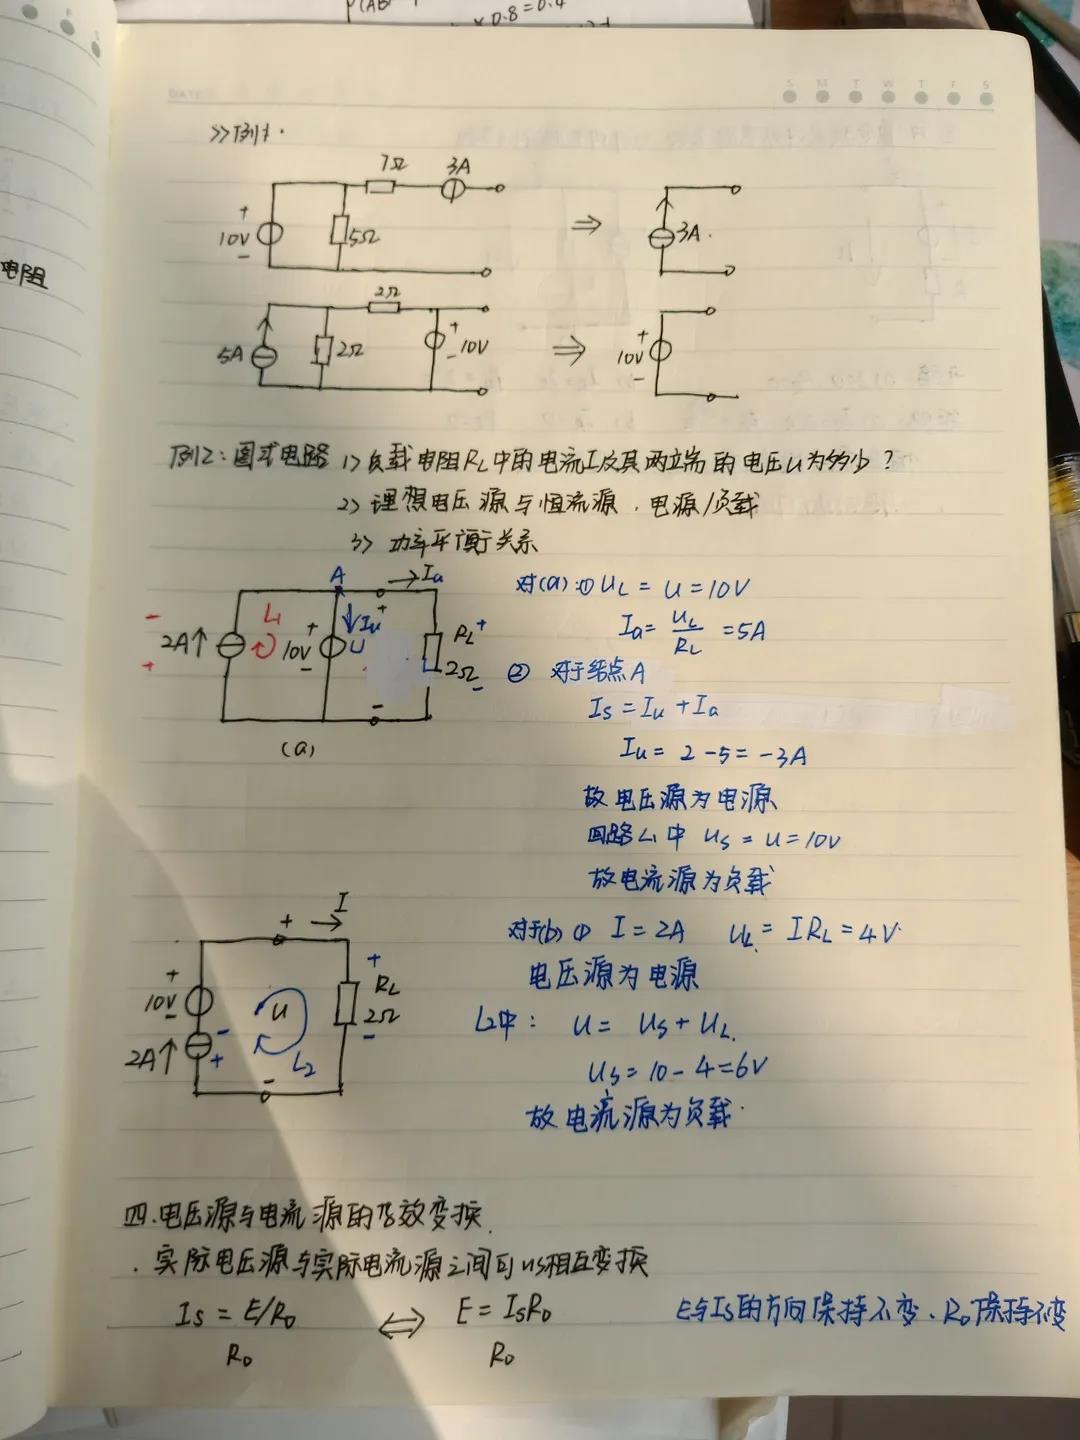 P(AB
× 0.8 = 0.4
DATE
S M T W T F S
电阻
>>例1.
7Ω 3A
+ 10V - 5Ω ⇒ 3A.
2Ω
5A 2Ω + - 10V ⇒ + 10V -
例2：图式电路 1> 负载电阻RL中的电流I及其两端的电压U为多少？
2> 理想电压源与恒流源．电源/负载
3> 功率平衡关系
A → Ia
- + 2A↑ L1 + 10V - ↓Iu U + - RL + 2Ω -
(a)
对(a)：① UL = U = 10V
Ia = UL/RL = 5A
② 对于结点A
Is = Iu + Ia
Iu = 2 - 5 = -3A
故电压源为电源
回路L1中 Us = U = 10V
故电流源为负载
+ → I
+ 10V - U + RL 2Ω -
2A↑ - + L2 -
对于(b) ① I = 2A UL = IRL = 4V.
电压源为电源
L2中： U = Us + UL.
Us = 10 - 4 = 6V
故电流源为负载.
四.电压源与电流源的等效变换.
. 实际电压源与实际电流源之间可以相互变换
Is = E/R0 ⇔ E = IsR0 E与Is的方向保持不变、R0保持不变
R0 R0